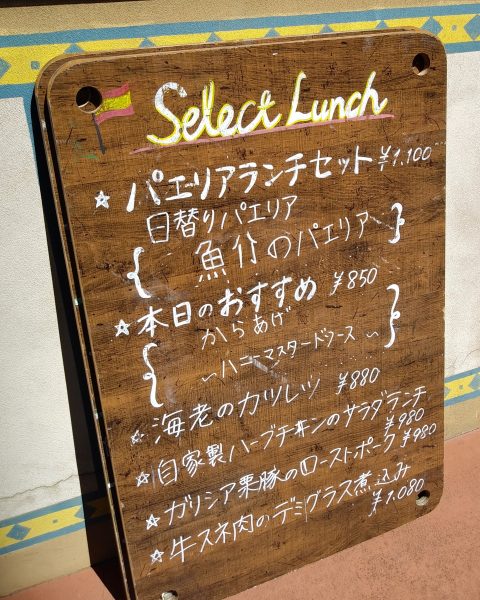 Select Lunch
☆パエリアランチセット ¥1.100
日替りパエリア
{魚介のパエリア}
☆本日のおすすめ ¥850
からあげ
{~ハニーマスタードソース~}
☆海老のカツレツ ¥880
☆自家製ハーブチキンのサラダランチ
¥980
☆ガリシア栗豚のローストポーク ¥980
☆牛スネ肉のデミグラス煮込み
¥1.080